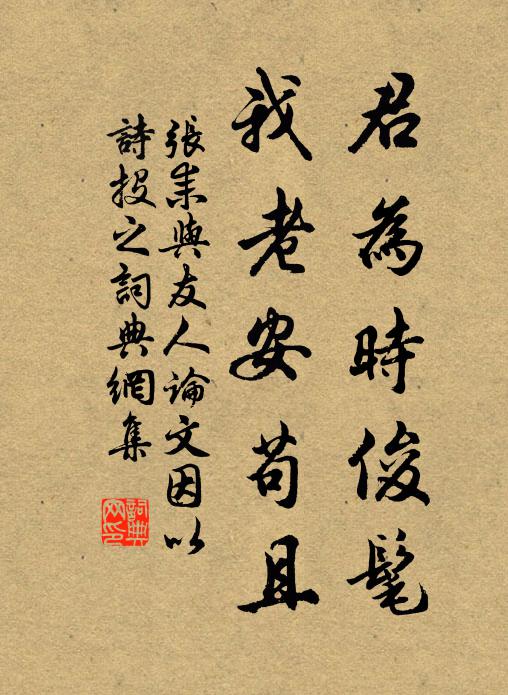 君為時俊髦
我老安苟且
張耒與友人論文因以
詩投之詞典網集
詞典
网印